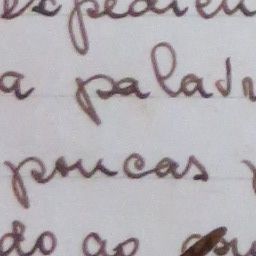 expedien
a palavr
poucas
do ao